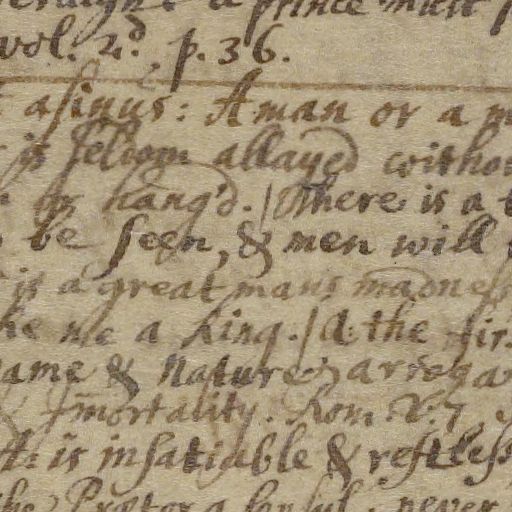 a prince must
vol. 2d, p. 36.
asinus: A man or a m
is seldom allayed withou
or hang'd. / There is a t
be seen, & men will
is a great mans madness
me a King. / A: the fir
ame & Nature; arroga
Immortality. Rom. V: 7
A: is insatiable & restless
the Prætor a Consul. never